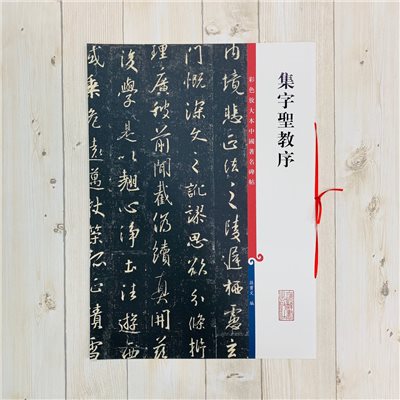 集字聖教序
彩色放大本中國著名碑帖
孫寶文 編
内境悲正法之陵遲栖慮玄
門慨深文之訛謬思欲分條析
理廣彼前聞截偽續真開茲
後學是以翹心淨土法遊西
域乘危遠邁杖策孤征積雪